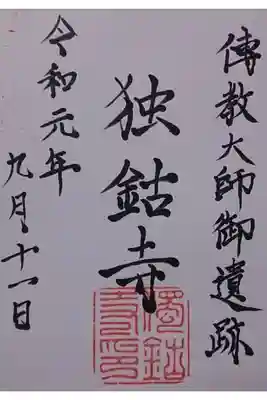 傳教大師御遺跡
独鈷寺
獨鈷寺印
令和元年
九月十一日